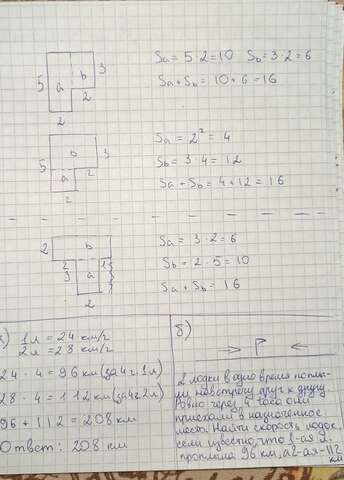 5 a b 3
2
2
Sa = 5 · 2 = 10 Sb = 3 · 2 = 6
Sa + Sb = 10 + 6 = 16
5 b 3
a 2
2
Sa = 2² = 4
Sb = 3 · 4 = 12
Sa + Sb = 4 + 12 = 16
2 b
2 1
3 a
2
Sa = 3 · 2 = 6
Sb = 2 · 5 = 10
Sa + Sb = 16
1л = 24 км/г
2л = 28 км/г
24 · 4 = 96 км (за 4г. 1л)
28 · 4 = 112 км (за 4г 2л)
96 + 112 = 208 км
Ответ: 208 км
б)
2 лодки в одно время поплы-
ли навстречу друг к другу.
Ровно через 4 часа они
приехали в назначенное
место. Найти скорость лодок,
если известно, что 1-ая л.
проплыла 96 км, а 2-ая - 112
км